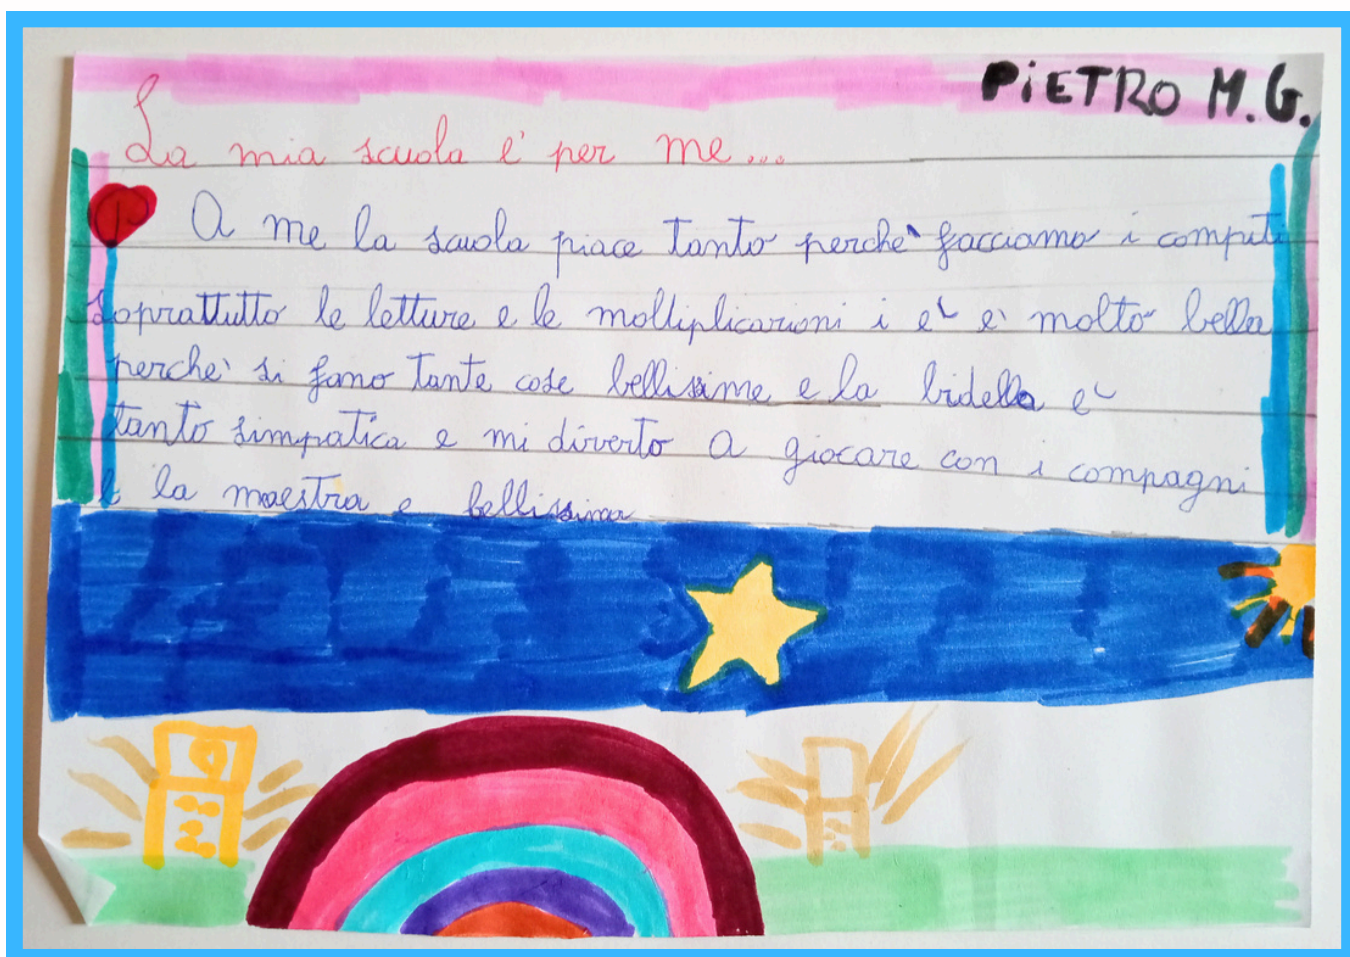 PiETRO M.G.
La mia scuola e' per me...
A me la scuola piace tanto perchè facciamo i compiti
soprattutto le letture e le molliplicarioni i è è molto bella
perchè si fano tante cose bellissime e la bidella è
tanto simpatica e mi diverto a giocare con i compagni
E la maestra e bellissima